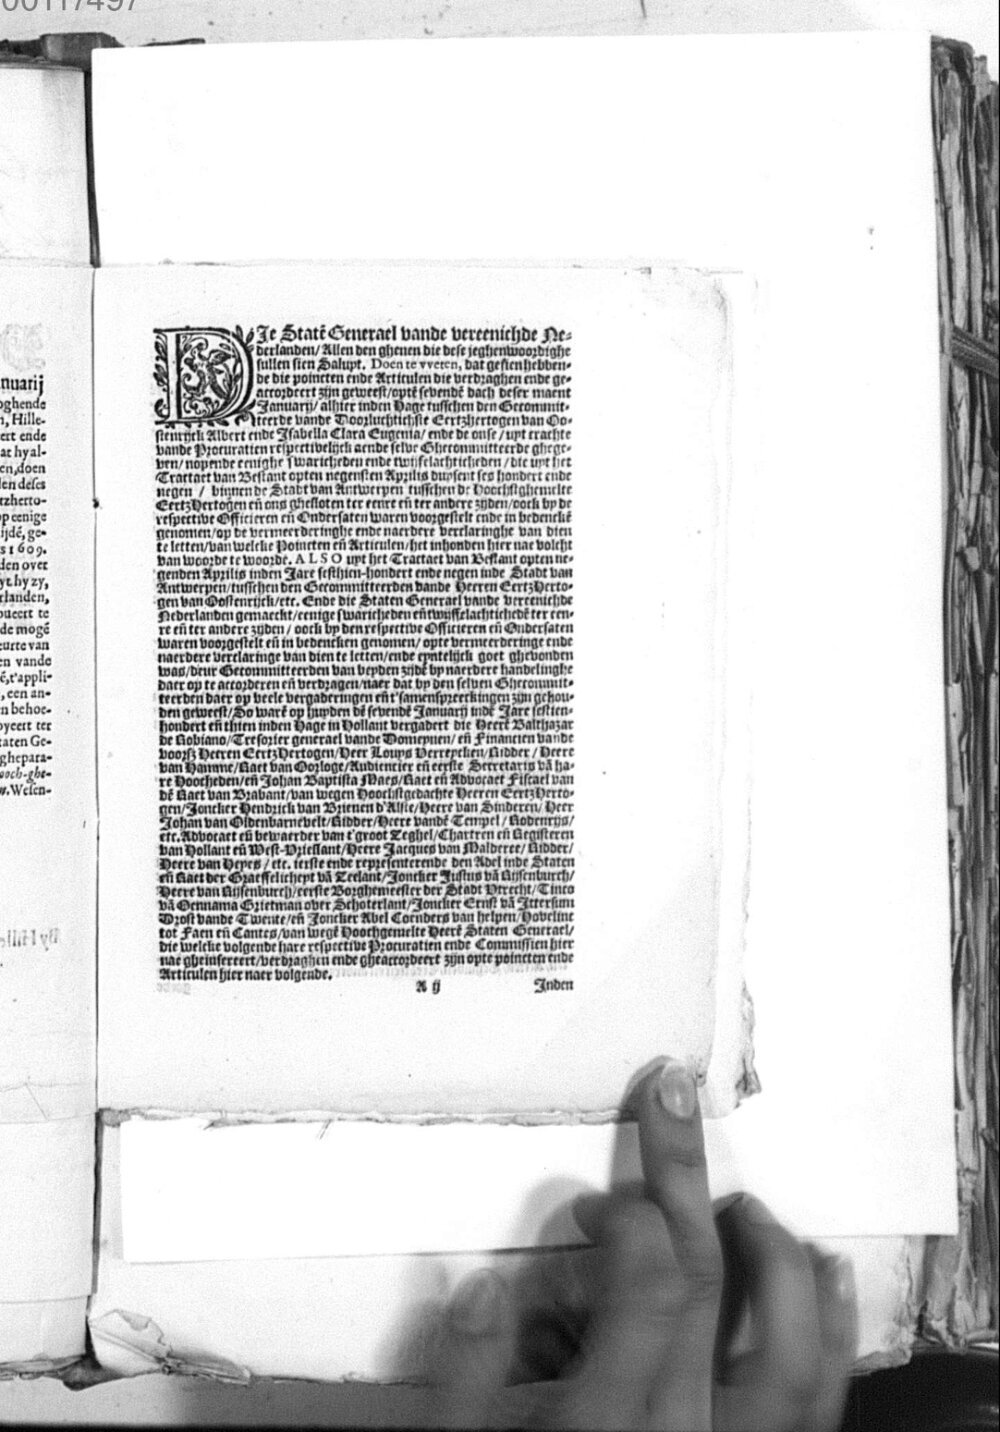 00117497
nuarij
oghende
n, Hille-
ert ende
at hy al-
en, doen
len deses
tzherto-
op eenige
ijdē, ge-
s 1609.
den over
yt hy zy,
rlanden,
bueert te
de mogē
eurte van
en vande
ē, t'appli-
, een an-
n behoe-
oyeert ter
taten Ge-
ghepara-
ooch-ghe-
w. Wesen-
DIe Statē Generael vande vereenichde Ne-
derlanden/ Allen den ghenen die dese jeghenwoordighe
sullen sien Saluyt. Doen te vveten, dat gesien hebben-
de die poincten ende Articulen die verdraghen ende ge-
accordeert zijn geweest/optē sevendē dach deser maent
Januarij/ alhier inden Hage tusschen den Gecommit-
teerde vande Doorluchtichste Eertzhertogen van Oo-
stenryck Albert ende Isabella Clara Eugenia/ ende de onse/ uyt crachte
vande Procuratien respectivelijck aende selve Ghecommitteerde ghege-
ven/ nopende eenighe swaricheden ende twijfelachticheden/ die uyt het
Tractaet van Bestant opten negensten Aprilis duysent ses hondert ende
negen / binnen de Stadt van Antwerpen tusschen de Hoochstghemelte
EertzHertogen eñ ons ghesloten ter eenre eñ ter andere zyden/oock by de
respective Officieren eñ Ondersaten waren voorgestelt ende in bedenckē
genomen/op de vermeerderinghe ende naerdere verclaringhe van dien
te letten/van welcke Poincten eñ Articulen/het inhonden hier nae volcht
van woorde te woorde. ALSO uyt het Tractaet van Bestant opten ne-
genden Aprilis inden Jare sesthien-hondert ende negen inde Stadt van
Antwerpen/tusschen den Gecommitteerden vande Heeren EertzHerto-
gen van Oostenryck/etc. Ende die Staten Generael vande vereenichde
Nederlanden gemaeckt/eenige swaricheden eñ twyffelachtichedē ter een-
re eñ ter andere zyden/ oock by den respective Officieren eñ Ondersaten
waren voorgestelt eñ in bedencken genomen/ opte vermeerderinge ende
naerdere verclaringe van dien te letten/ende eyntelijck goet ghevonden
was/deur Gecommitteerden van beyden zijdē by naerdere handelinghe
daer op te accorderen eñ verdragen/naer dat by den selven Ghecommit-
teerden daer op veele vergaderingen eñ t'samenspreeckingen zijn gehou-
den geweest/So warē op huyden dē sevendē Januarij indē Jare sestien-
hondert eñ thien inden Hage in Hollant vergadert die Heerē Balthazar
de Robiano/Tresorier generael vande Domeynen/ eñ Financien vande
voorsz Heeren EertzHertogen/Heer Louys Verreycken/Ridder/ Heere
van Hamme/Raet van Oorloge/Audiencier eñ eerste Secretaris vā ha-
re Hoocheden/eñ Johan Baptista Maes/Raet eñ Advocaet Fiscael van
dē Raet van Brabant/van wegen Hoochstgedachte Heeren EertzHerto-
gen/Joncker Hendrick van Brienen d'Alste/Heere van Sinderen/ Heer
Johan van Oldenbarnevelt/Ridder/Heere vandē Tempel/ Rodenrys/
etc. Advocaet eñ bewaerder van t'groot Zeghel/Chartren eñ Registeren
van Hollant eñ West-Vriesslant/Heere Jacques van Malderee/Ridder/
Heere van Heyes/ etc. ierste ende representerende den Adel inde Staten
eñ Raet der Graeffelicheyt vā Zeelant/Joncker Justus vā Rijsenburch/
Heere van Rijsenburch/eerste Borghemeester der Stadt Utrecht/Tinco
vā Oennama Grietman over Schoterlant/Joncker Ernst vā Ittersum
Drost vande Twente/eñ Joncker Abel Coenders van helpen/Hovelinc
tot Faen eñ Cantes/van wegē Hoochgemelte Heerē Staten Generael/
die welcke volgende hare respective Procuratien ende Commissien hier
nae gheinsereert/verdraghen ende gheaccordeert zijn opte poincten ende
Articulen hier naer volgende.
A ij Inden